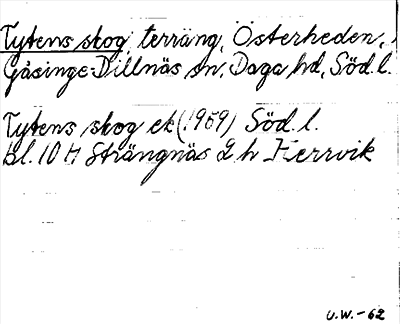 Tytens skog, terräng, Österheden,
Gåsinge-Dillnäs sn, Daga hd, Söd. l.
Tytens skog ek (1959) Söd. l.
bl. 10 H Strängnäs 2 h Herrvik
U.W. -62